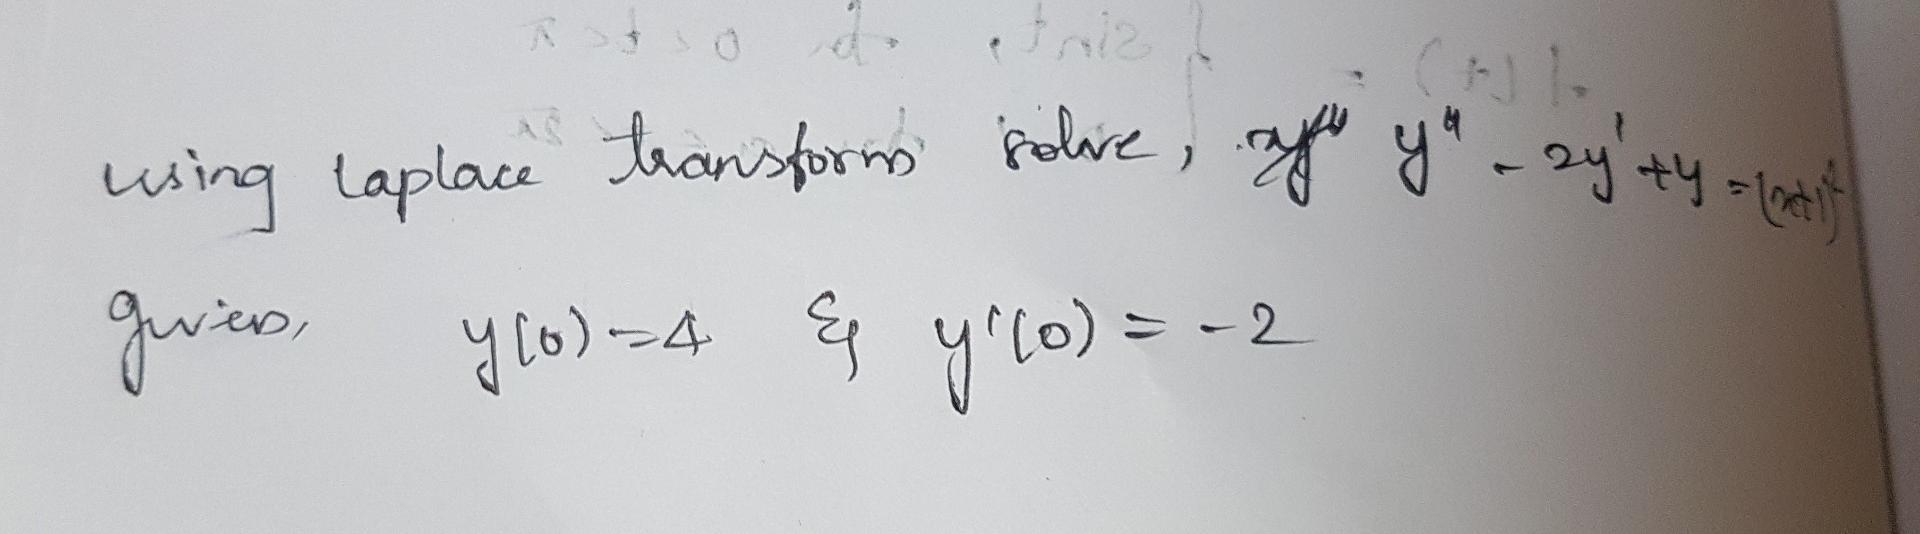 using Laplace transform solve, y" - 2y' + y = (x+1)²
given, y(0) = 4 & y'(0) = -2